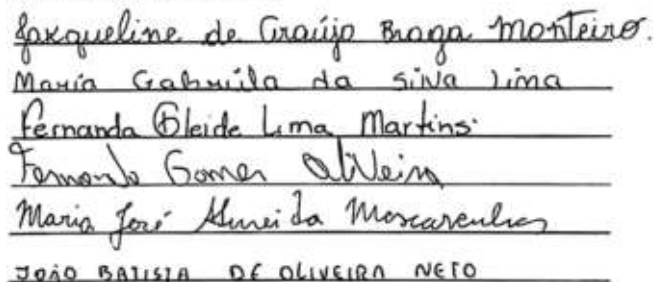 Jacqueline de Araújo Braga Monteiro.
Maria Gabriila da Silva Lima
Fernanda Gleide Lima Martins.
Fernando Gomes Oliveira
Maria José Almeida Mascarenhas
JOÃO BATISTA DE OLIVEIRA NETO